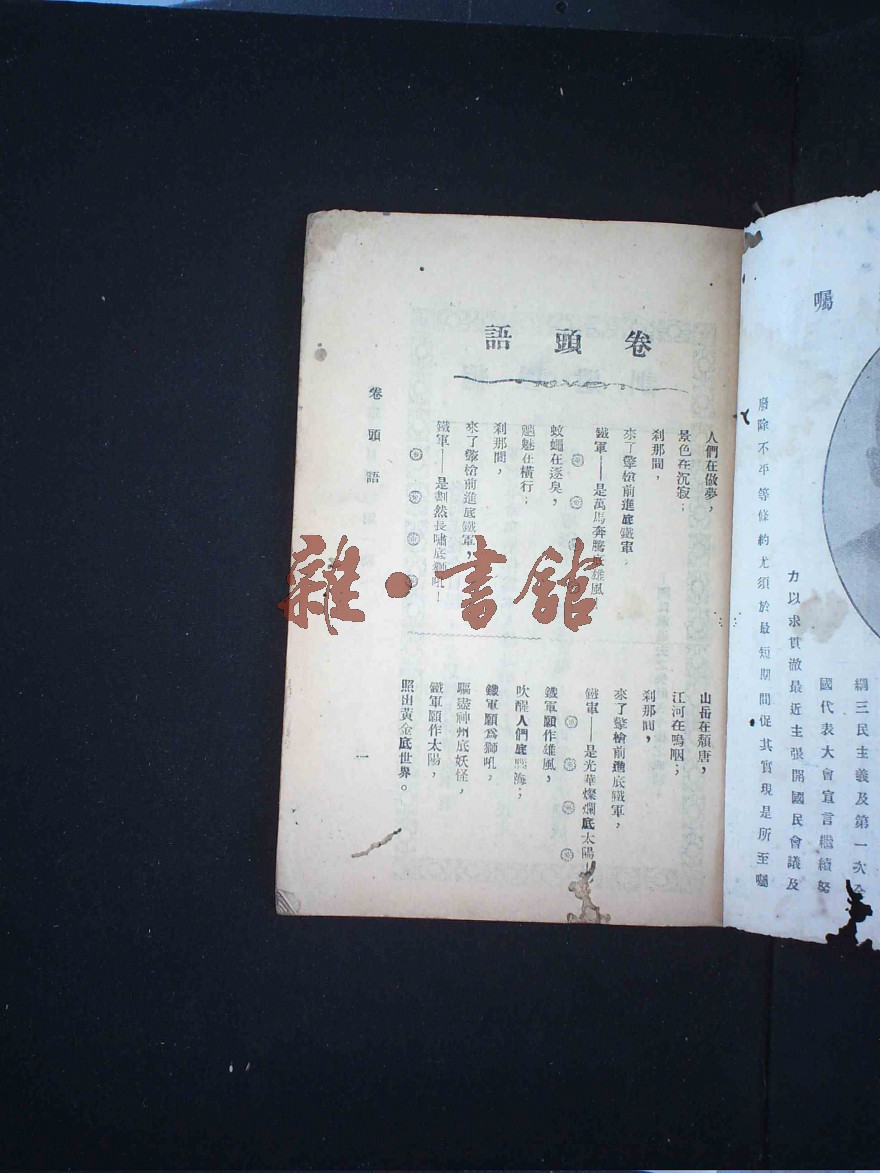 囑
廢除不平等條約尤須於最短期間促其實現是所至囑
力以求貫澈最近主張開國民會議及
國代表大會宣言繼續努
綱三民主義及第一次全
卷頭語
人們在做夢，
景色在沉寂；
刹那間，
來了擎槍前進底鐵軍，
鐵軍——是萬馬奔騰底雄風！
蚊蠅在逐臭，
魑魅在橫行；
刹那間，
來了擎槍前進底鐵軍，
鐵軍——是劃然長嘯底獅吼！
山岳在頹唐，
江河在嗚咽；
刹那間，
來了擎槍前進底鐵軍，
鐵軍——是光華燦爛底太陽！
鐵軍願作雄風，
吹醒人們底 海；
鐵軍願爲獅吼，
驅盡神州底妖怪，
鐵軍願作太陽，
照出黃金底世界。
卷頭語
一
雜·書館